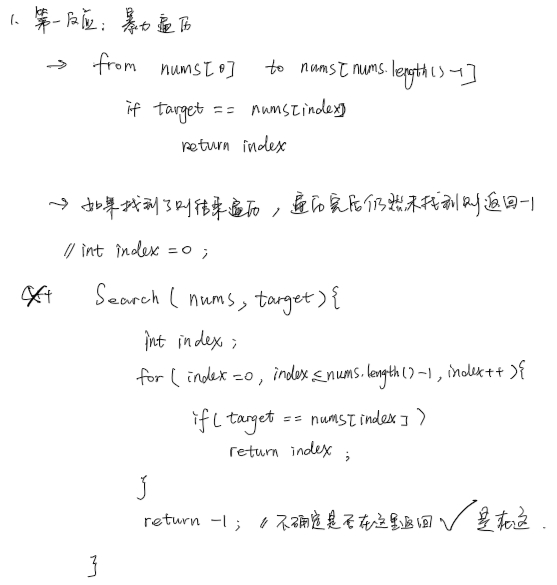 1. 第一反应：暴力遍历
→ from nums[0] to nums[nums.length()-1]
if target == nums[index]
return index
→ 如果找到了则结束遍历，遍历完后仍然未找到则返回-1
// int index = 0 ;
Search ( nums, target ) {
int index ;
for ( index = 0, index ≤ nums.length()-1, index++ ) {
if ( target == nums[index] )
return index ;
}
return -1 ; // 不确定是否在这里返回 ✓ 是在这.
}